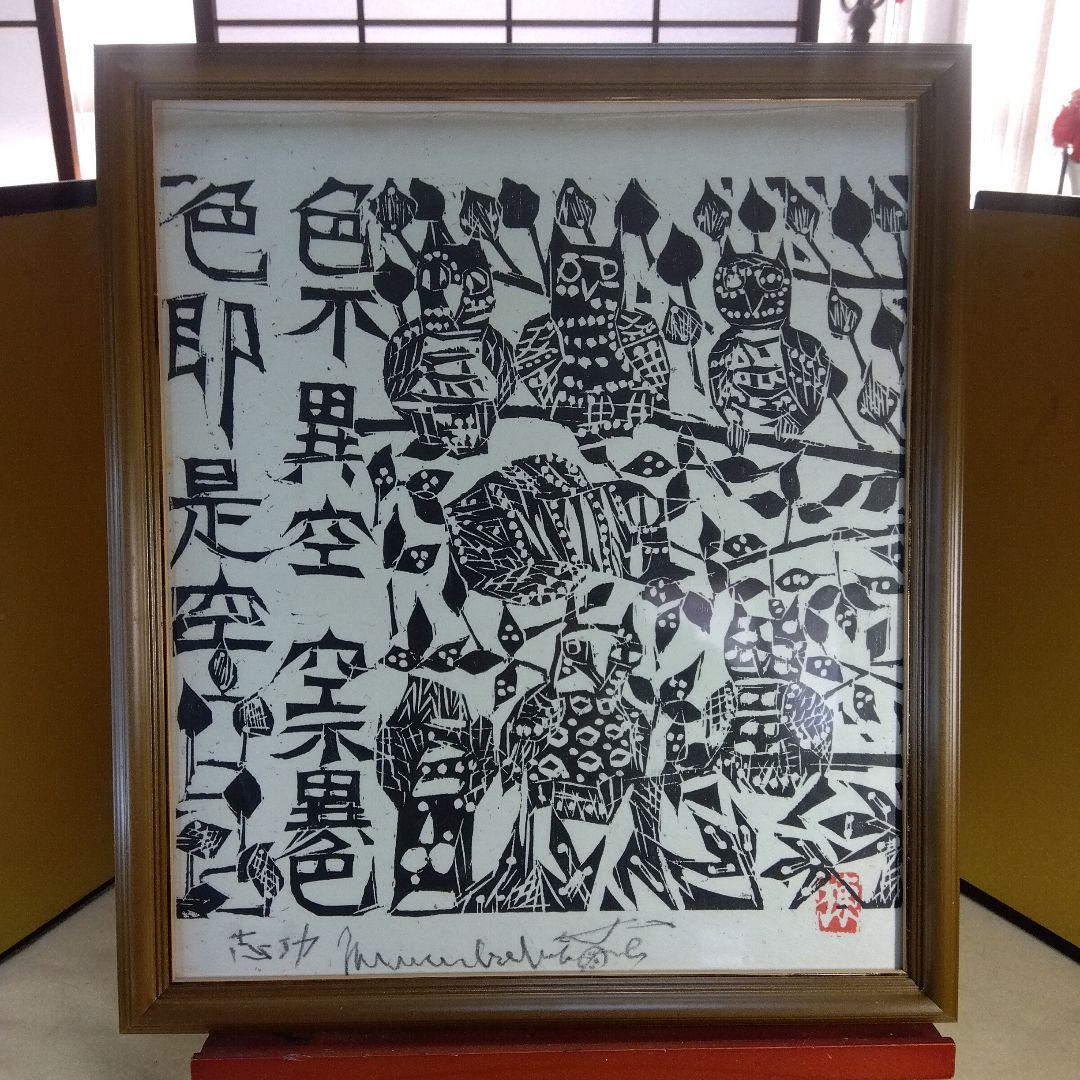 色不異空 空不異色
色即是空
志功